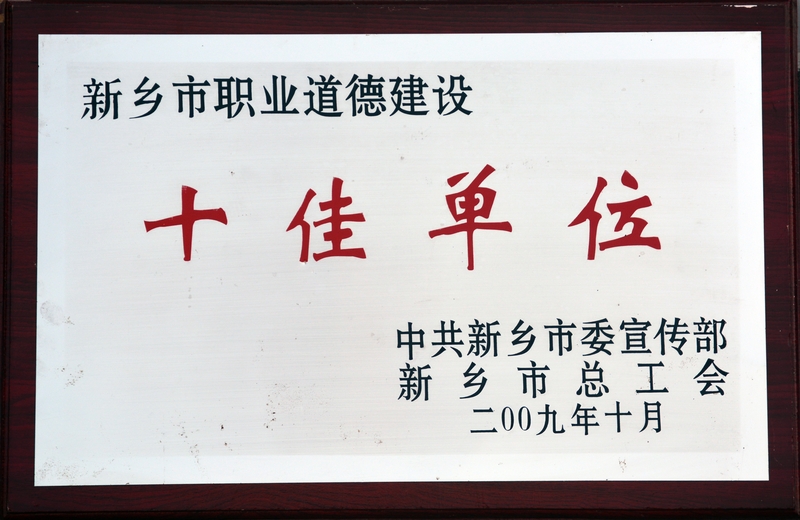 新乡市职业道德建设
十佳单位
中共新乡市委宣传部
新乡市总工会
二00九年十月